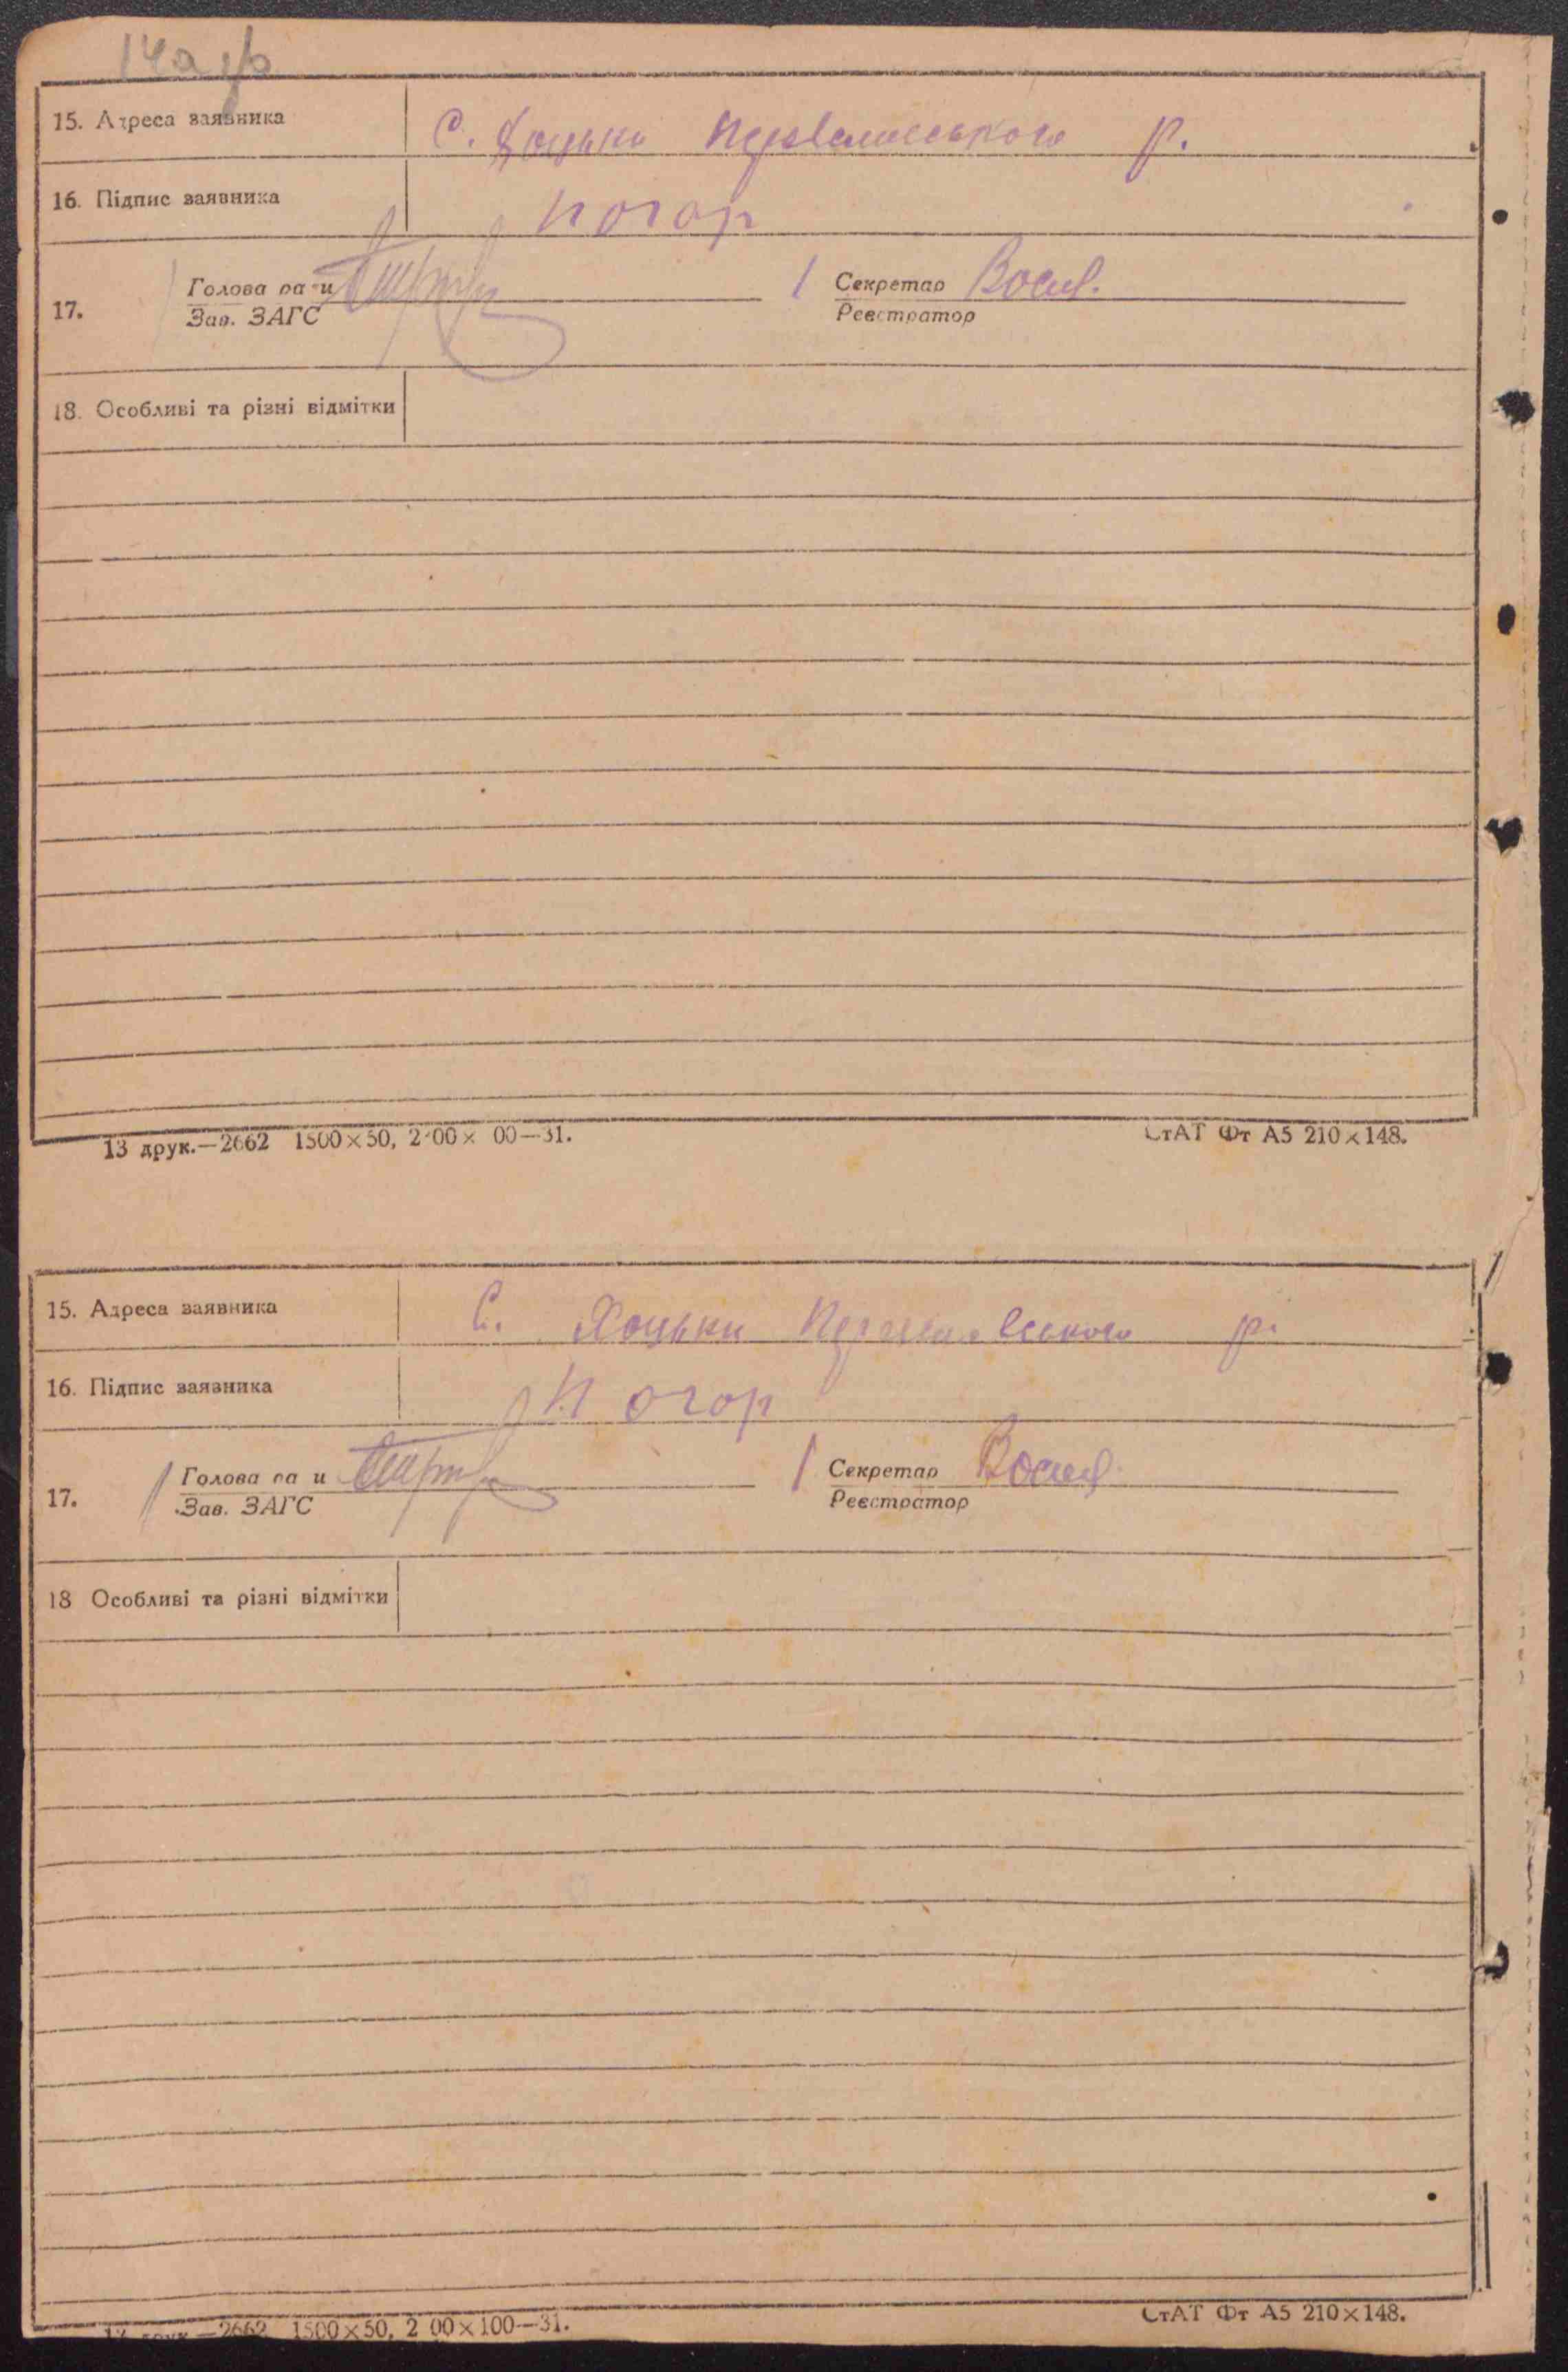 15. Адреса заявника С. Хоцьки Переяславського р.
16. Підпис заявника
17. Голова ра и Секретар
Зав. ЗАГС Реєстратор
18. Особливі та різні відмітки
13 друк.—2662 1500×50, 2 00× 00—31. СтАТ Фт А5 210×148.
15. Адреса заявника С. Хоцьки р.
16. Підпис заявника
17. Голова ра и Секретар
Зав. ЗАГС Реєстратор
18 Особливі та різні відмітки
—2662 1500×50, 2 00×100—31. СтАТ Фт А5 210×148.